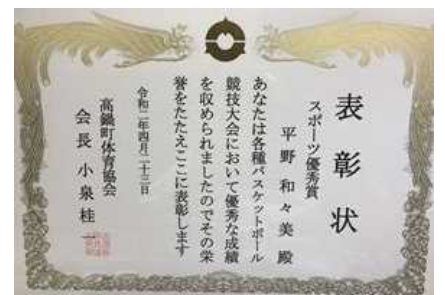 表彰状
スポーツ優秀賞
平野和々美殿
あなたは各種バスケットボール
競技大会において優秀な成績
を収められましたのでその栄
誉をたたえここに表彰します
令和二年四月二十三日
高鍋町体育協会
会長小泉桂一